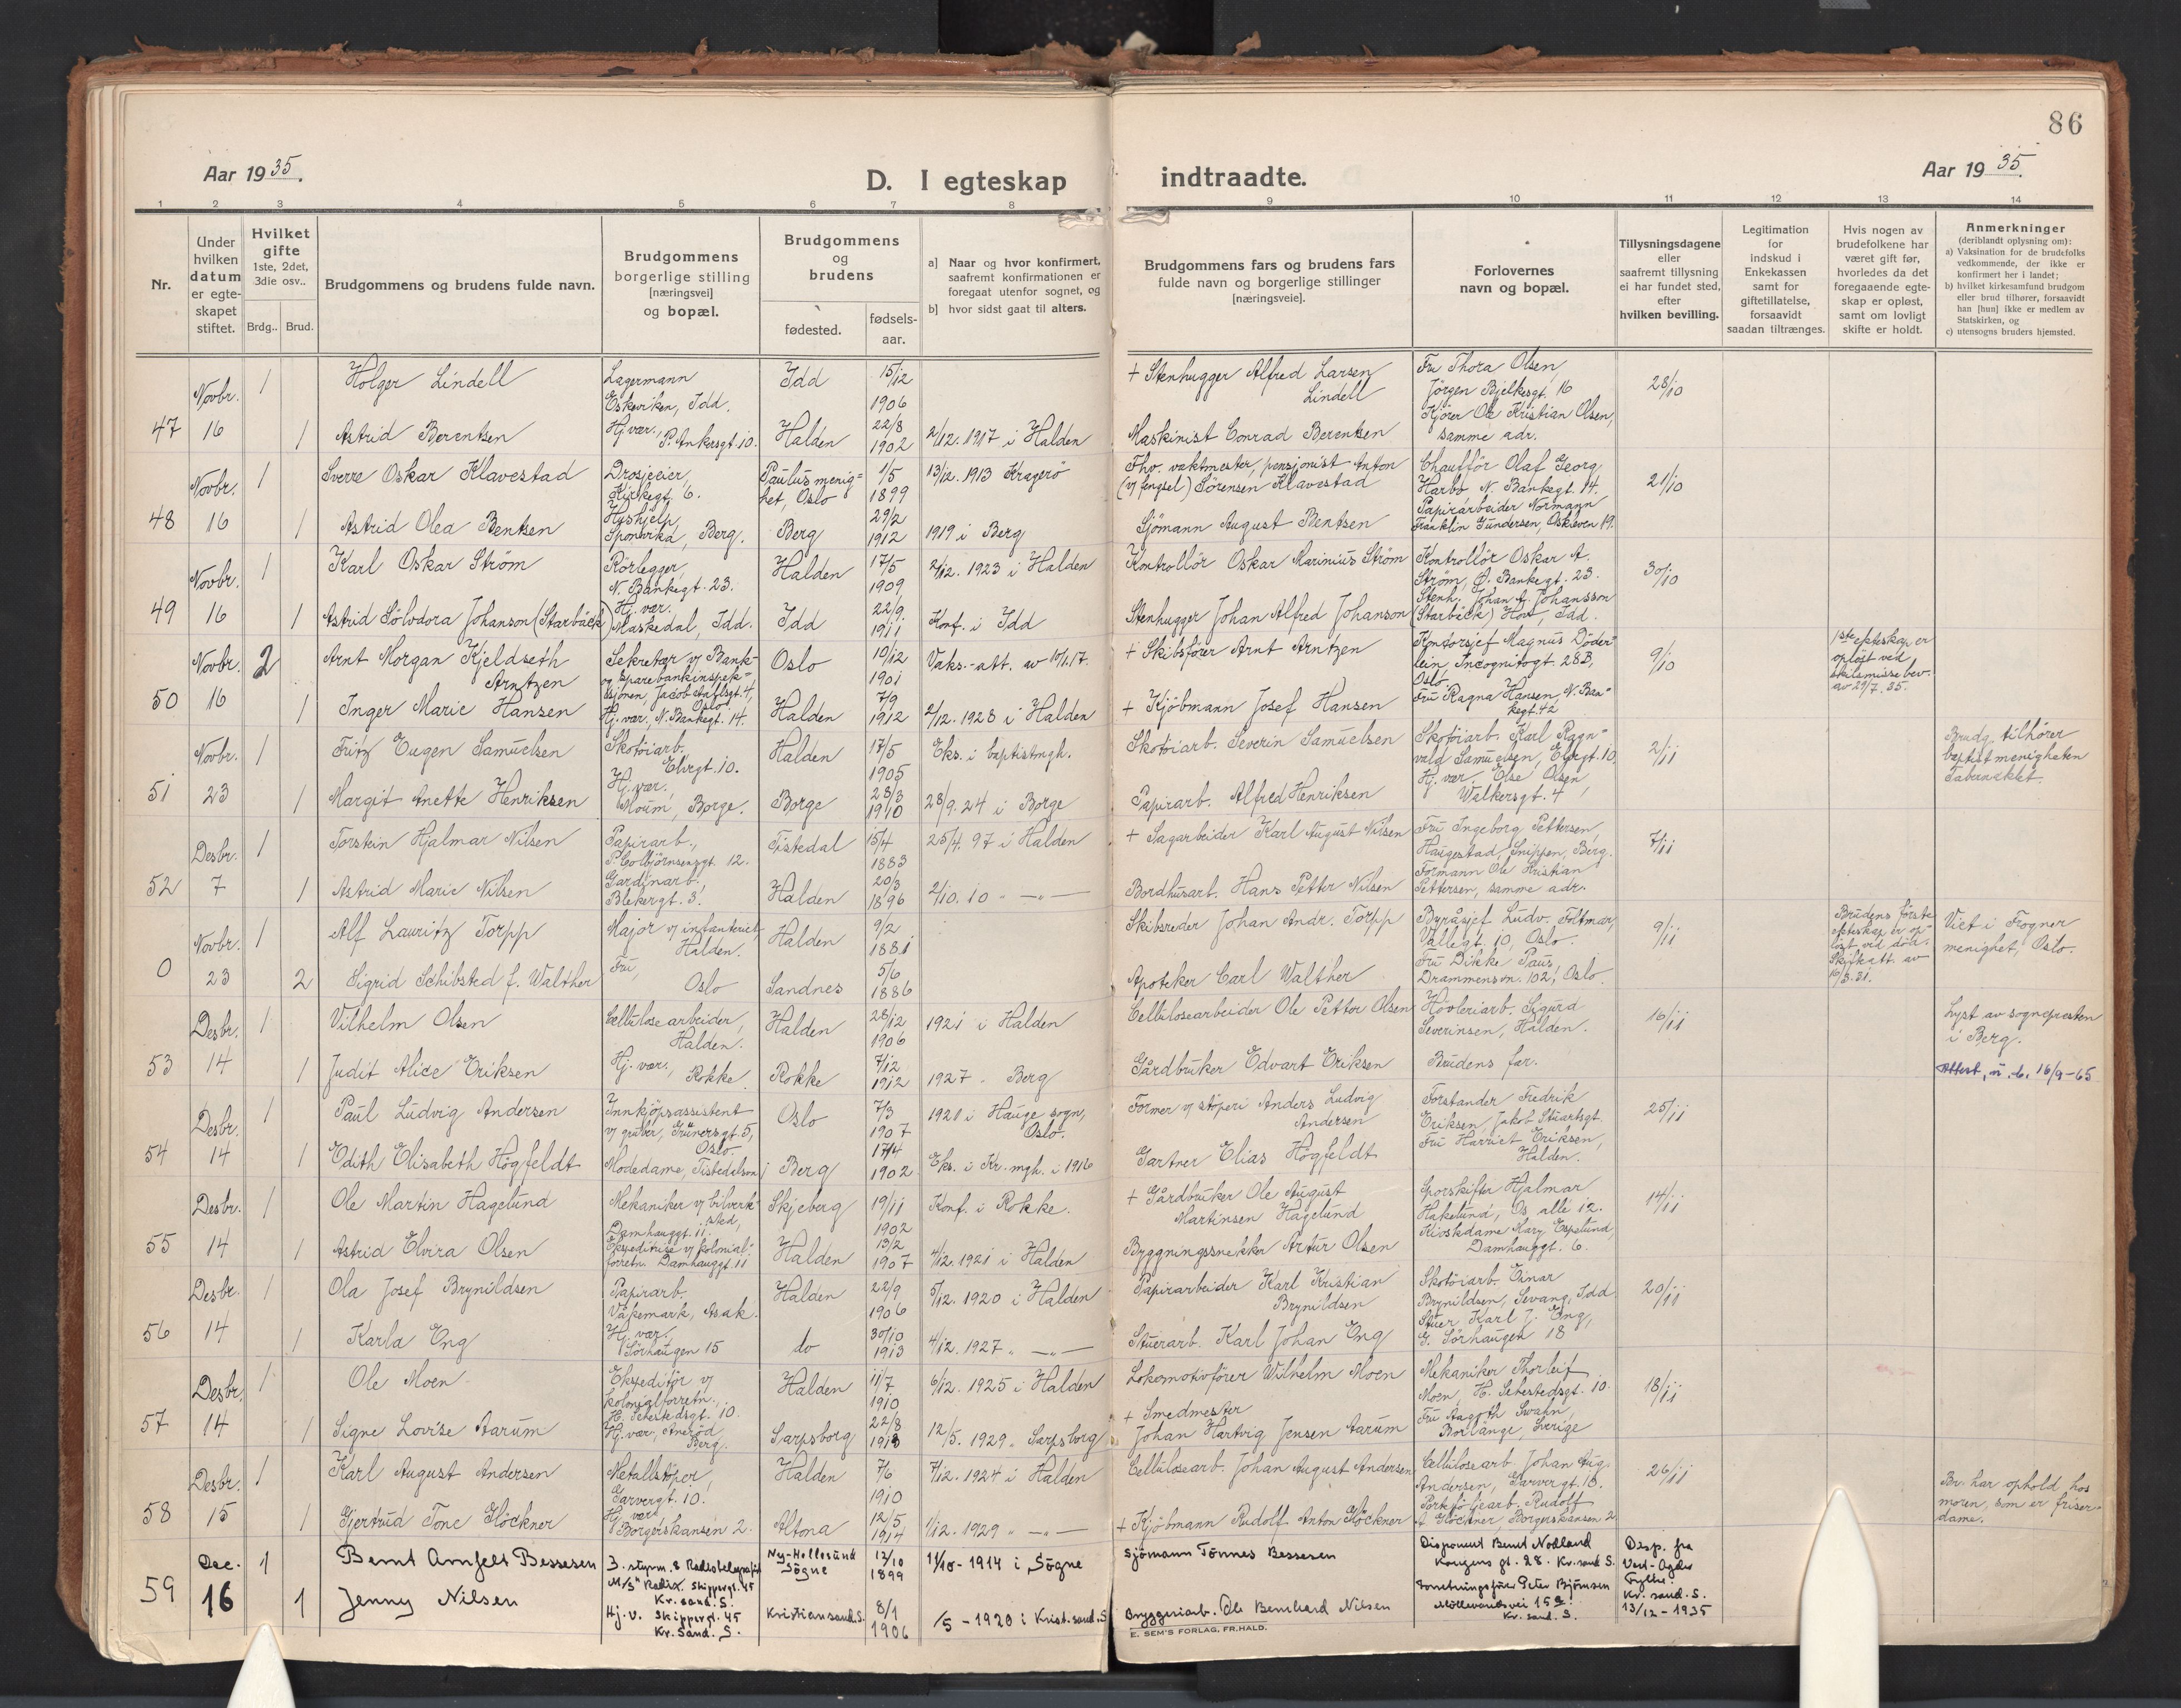 86
Aar 1935.
D. I egteskap
indtraadte.
Aar 1935.
1 2 3 4 5 6 7 8 9 10 11 12 13 14
Nr.
Under hvilken datum er egteskapet stiftet.
Hvilket gifte 1ste, 2det, 3die osv..
Brdg.. Brud.
Brudgommens og brudens fulde navn.
Brudgommens borgerlige stilling [næringsvei] og bopæl.
Brudgommens og brudens
fødested.
fødsels-aar.
a] Naar og hvor konfirmert, saafremt konfirmationen er foregaat utenfor sognet, og
b] hvor sidst gaat til alters.
Brudgommens fars og brudens fars fulde navn og borgerlige stillinger [næringsveie].
Forlovernes navn og bopæl.
Tillysningsdagene eller saafremt tillysning ei har fundet sted, efter hvilken bevilling.
Legitimation for indskud i Enkekassen samt for giftetillatelse, forsaavidt saadan tiltrænges.
Hvis nogen av brudefolkene har været gift før, hvorledes da det foregaaende egteskap er opløst, samt om lovligt skifte er holdt.
Anmerkninger (deriblandt oplysning om):
a) Vaksination for de brudefolks vedkommende, der ikke er konfirmert her i landet;
b) hvilket kirkesamfund brudgom eller brud tilhører, forsaavidt han [hun] ikke er medlem av Statskirken, og
c) utensogns bruders hjemsted.
47 Novbr. 16
1 Holger Lindell Lagermann Eskeviken, Idd. Idd 15/12 1906
+ Stenhugger Alfred Larsen Lindell
Fru Thora Olsen, Jörgen Bjelkesgt. 16
28/10
1 Astrid Berentsen Hj. vær., P. Ankersgt. 10. Halden 22/8 1902 2/12. 1917 i Halden
Maskinist Conrad Berentsen
Kjörer Ole Kristian Olsen, samme adr.
48 Novbr. 16
1 Sverre Oskar Klavestad Drosjeeier, Kirkegt. 6. Paulus menighet, Oslo 1/5 1899 13/12. 1913 Kragerö
Fhv. vaktmester, pensjonist Anton (v/ fengsel) Sörensen Klavestad
Chauffför Olaf Georg Harbo, N. Bankegt. 14.
21/10
1 Astrid Olea Bentsen Hushjelp Sponvika, Berg. Berg 29/2 1912 1919 i Berg
Sjömann August Bentsen
Papirarbeider Normann Franklin Gundersen, Oskleven 19.
49 Novbr. 16
1 Karl Oskar Ström Rörlegger, N. Bankegt. 23. Halden 17/5 1909 2/12. 1923 i Halden
Kontrollör Oskar Marinius Ström
Kontrollör Oskar A. Ström, Ø. Bankegt. 23.
30/10
1 Astrid Sölvdora Johanson (Starbäck) Hj. vær. Maskedal, Idd. Idd 22/9 1911 Konf. i Idd
Stenhugger Johan Alfred Johanson (Starbäck)
Stenh. Johan A. Johansson Hov, Idd.
50 Novbr. 16
2 Arnt Morgan Kjeldseth Arntzen Sekretær v/ Bank- og Sparebankinspeksjonen, Jacob Aallsgt. 4, Oslo. Oslo 10/12 1901 Vaks.-att. av 10/1.17.
+ Skibsförer Arnt Arntzen
Kontorsjef Magnus Döderlein, Incognitogt. 28B, Oslo.
9/10
1ste ekteskap er oplöst ved skilsmisse bev. av 29/7. 35.
1 Inger Marie Hansen Hj. vær, N. Bankegt. 14. Halden 7/9 1912 2/12. 1928 i Halden
+ Kjöbmann Josef Hansen
Fru Ragna Hansen, N. Bankegt. 42
51 Novbr. 23
1 Fritz Eugen Samuelsen Skotöiarb. Elvegt. 10. Halden 17/5 1905 Eks. i baptistmgh.
Skotöiarb. Severin Samuelsen
Skotöiarb. Karl Ragnvald Samuelsen, Elvegt. 10.
2/11
Brudg. tilhörer baptistmenigheten Tabernaklet.
1 Margit Anette Henriksen Hj. vær. Moum, Borge. Borge 28/3 1910 28/9. 24 i Borge
Papirarb. Alfred Henriksen
Hj. vær. Else Olsen, Walkersgt. 4
52 Desbr. 7
1 Torstein Hjalmar Nilsen Papirarb., P. Colbjörnsensgt. 12. Tistedal 15/4 1883 25/4. 97 i Halden
+ Sagarbeider Karl August Nilsen
Fru Ingeborg Pettersen, Haugestad, Snippen, Berg.
7/11
1 Astrid Marie Nilsen Gardinarb. Blekergt. 3. Halden 20/3 1896 2/10. 10 —"—
Bordhusarb. Hans Petter Nilsen
Formann Ole Kristian Pettersen, samme adr.
0 Novbr. 23
1 Alf Lauritz Torpp Major v/ infanteriet, Halden. Halden 9/2 1881
Skibsreder Johan Andr. Torpp
Byråsjef Ludv. Foltmar, Vallegt. 10, Oslo.
9/11
Brudens förste ekteskap er oplöst ved döm. Skifteatt. av 16/3. 31.
Viet i Frogner menighet, Oslo.
2 Sigrid Schibsted f. Walther Fru, Oslo Sandnes 5/6 1886
Apoteker Carl Walther
Fru Dikke Paus, Drammensvn. 102, Oslo.
53 Desbr. 14
1 Vilhelm Olsen Cellulosearbeider, Halden. Halden 28/12 1906 1921 i Halden
Cellulosearbeider Ole Petter Olsen
Hövleriarb. Sigurd Severinsen, Halden.
16/11
Lyst av sognepresten i Berg.
1 Judit Alice Eriksen Hj. vær., Rokke Rokke 7/12 1912 1927 " Berg
Gårdbruker Edvart Eriksen
Brudens far.
Attest, u. b. 16/9-65
54 Desbr. 14
1 Paul Ludvig Andersen Innkjöpsassistent v/ gruber, Grünersgt. 5, Oslo. Oslo 7/3 1907 1921 i Hauge sogn, Oslo.
Former v/ stöperi Anders Ludvig Andersen
Forstander Fredrik Eriksen, Jakob Stuartsgt.
25/11
1 Edith Elisabeth Högfeldt Modedame, Tistedalson Berg 17/4 1902 Eks. i Kr. mgh. i 1916
Gartner Elias Högfeldt
Fru Harriet Eriksen, Halden.
55 Desbr. 14
1 Ole Martin Hagelund Mekaniker v/ bilverksted, Damhauggt. 11. Skjeberg 19/11 1902 Konf. i Rokke.
+ Gårdbruker Ole August Martinsen Hagelund
Sporskifter Hjalmar Hakelund, Os alle 12.
14/11
1 Astrid Elvira Olsen Ekspeditrise v/ kolonialforretn. Damhauggt. 11 Halden 13/2 1907 4/12. 1921 i Halden
Byggningssnekker Artur Olsen
Kioskdame Mary Espelund, Damhauggt. 6.
56 Desbr. 14
1 Ola Josef Brynildsen Papirarb. Våkemark, Asak. Halden 22/9 1906 5/12. 1920 i Halden
Papirarbeider Karl Kristian Brynildsen
Skotöiarb. Einar Brynildsen, Levang, Idd
20/11
1 Karla Eng Hj. vær, Sörhaugen 15 do 30/10 1913 4/12. 1927 " —"—
Stuerarb. Karl Johan Eng
Stuer Karl J. Eng, G. Sörhaugen 18
57 Desbr. 14
1 Ole Moen Ekspeditör v/ kolonialforretn., H. Sehestedsgt. 10. Halden 11/7 1910 6/12. 1925 i Halden
Lokomotivförer Wilhelm Moen
Mekaniker Thorleif Moen, H. Sehestedsgt. 10.
18/11
1 Signe Lovise Aarum Hj. vær, Aneröd, Berg. Sarpsborg 22/8 1913 12/5. 1929 " Sarpsborg
+ Smedmester Johan Hartvig Jensen Aarum
Fru Aagoth Swahn, Borlänge, Sverige
58 Desbr. 15
1 Karl August Andersen Metallstöper, Garvergt. 10. Halden 7/6 1910 7/12. 1924 i Halden
Cellulosearb. Johan August Andersen
Cellulosearb. Johan Aug. Andersen, Garvergt. 10.
26/11
Br. har ophold hos moren, som er friserdame.
1 Gjertrud Tone Glöckner Hj. vær Borgerskansen 2. Altona 12/5 1914 1/12. 1929 " —"—
+ Kjöbmann Rudolf Anton Glöckner
Porteföljearb. Rudolf A. Glöckner, Borgerskansen 2
59 Dec. 16
1 Bernt Arnfelt Bessesen 3. styrm. & Radiotelegrafist M/S "Radix" Skippergt. 45 Kr.sand. S. Ny-Hellesund Sögne 12/10 1899 11/10 - 1914 i Sögne
Sjömann Tönnes Bessesen
Disponent Bernt Nodland Kongens gt. 28. Kr.sand S.
Disp. fra Vest-Agder Fylke. Kr.sand. S. 13/12 - 1935
1 Jenny Nilsen Hj. v. Skippergt. 45 Kr. Sand. S. Kristiansand. S. 8/1 1906 /5 - 1920 i Krist.sand. S
Bryggeriarb. Ole Bernhard Nilsen
Forretningsförer Peter Björnsen Möllevandsvei 15 a. Kr. sand. S.
E. SEM'S FORLAG, FR.HALD.